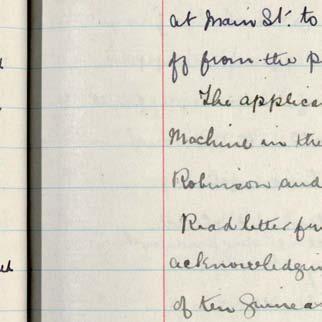 at Main St. to
from the p
The applica
Machine in the
Robinson and
Read letter fr
acknowledgin
of ten Guinea